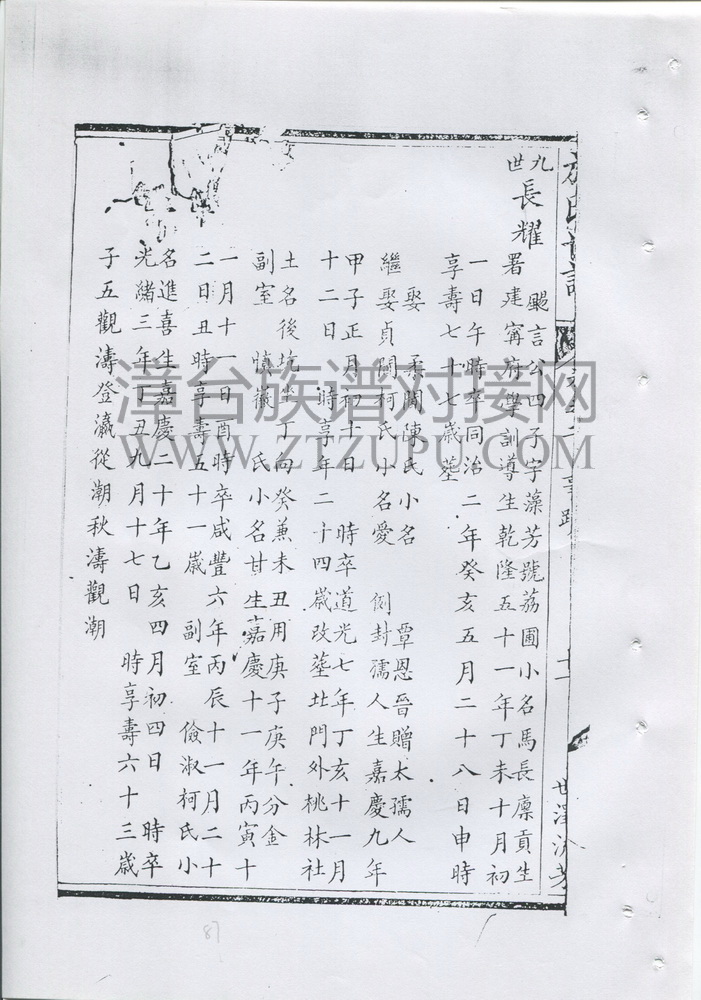 九世
長耀
颺言公四子字藻芳號荔圃小名馬長廩貢生
署建甯府學訓導生乾隆五十一年丁未十月初
一日午時卒同治二年癸亥五月二十八日申時
享壽七十七歲塟
娶 柔閫陳氏小名 覃恩晉贈太孺人
繼娶貞閫柯氏小名愛 例封孺人生嘉慶九年
甲子正月初十日 時卒道光七年丁亥十一月
十二日 時享年二十四歲改塟北門外桃林社
土名後坑坐丁向癸兼未丑用庚子庚午分金
副室 慎徽 氏小名甘生嘉慶十一年丙寅十
一月十一日酉時卒咸豐六年丙辰十一月二十
二日丑時享壽五十一歲 副室 儉淑柯氏小
名進喜生嘉慶二十年乙亥四月初四日 時卒
光緒三年丁丑九月十七日 時享壽六十三歲
子五觀濤登瀛從潮秋濤觀潮
十一
世澤流芳
漳台族谱对接网
WWW.ZTZUPU.COM
87